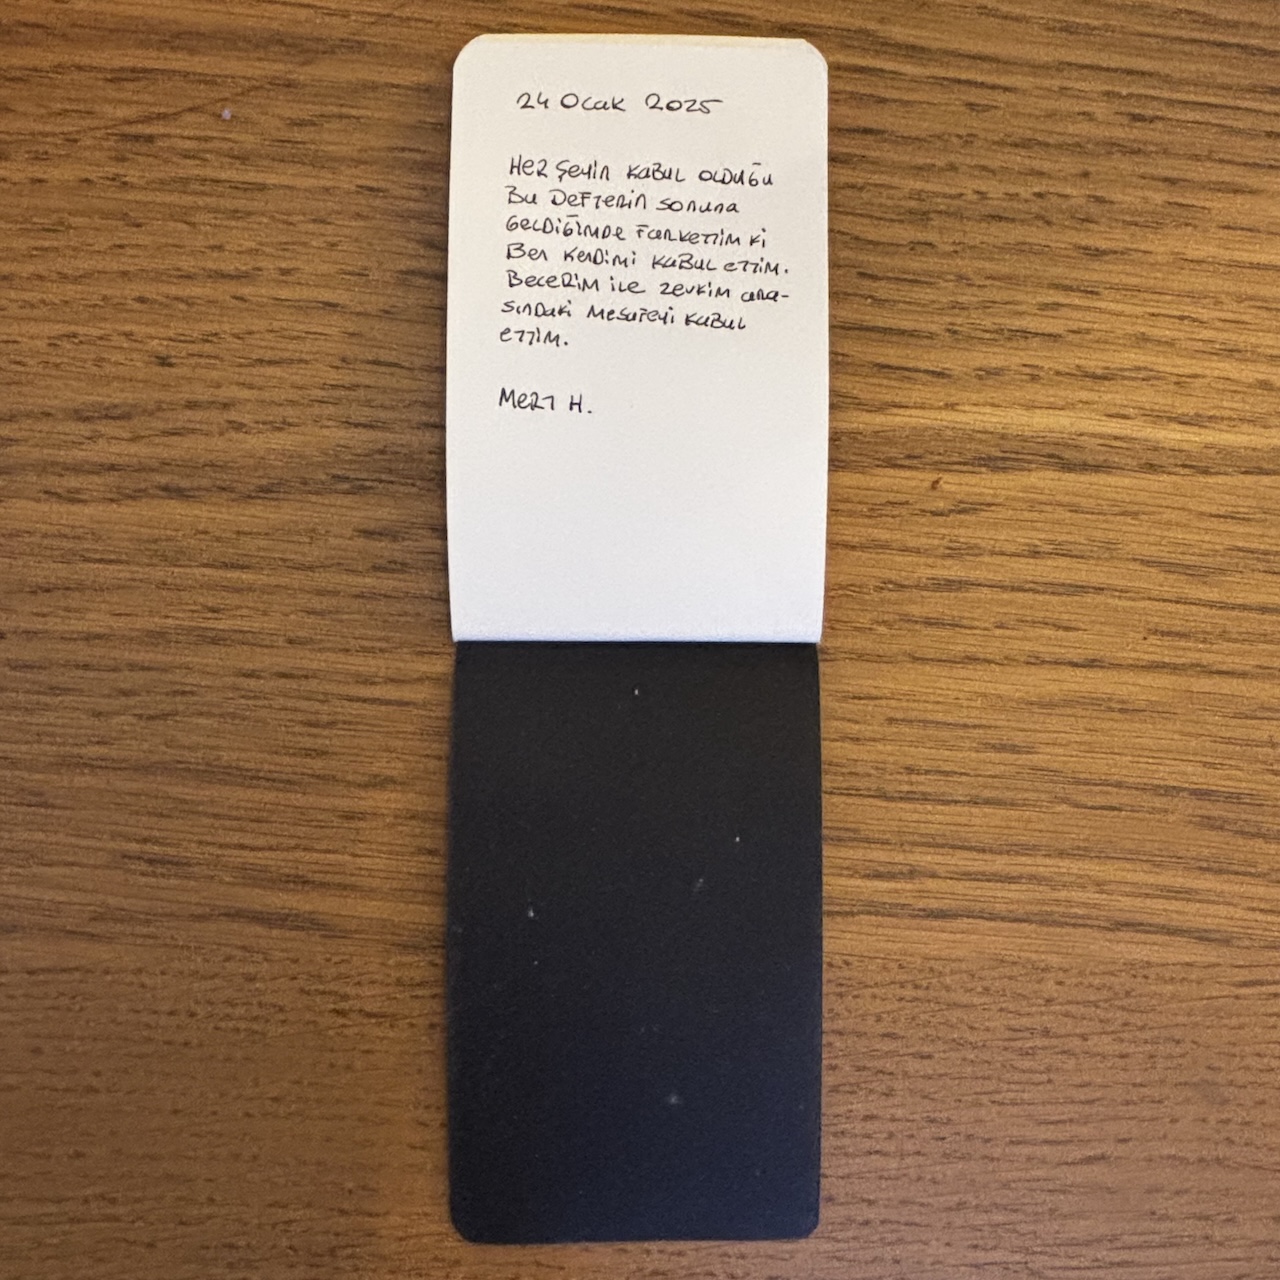 24 Ocak 2025
Her şeyin kabul olduğu
Bu Defterin sonuna
Geldiğimde farkettim ki
Ben kendimi kabul ettim.
Becerim ile zevkim ara-
sındaki mesafeyi kabul
ettim.
Mert H.